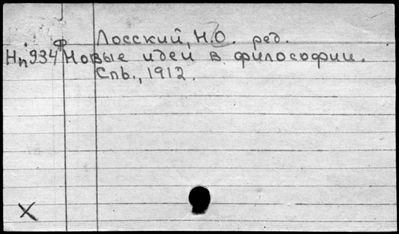 Лосский, Н.О. ред.
Нп934 Ф Новые идеи в философии.
Спб., 1912.
X